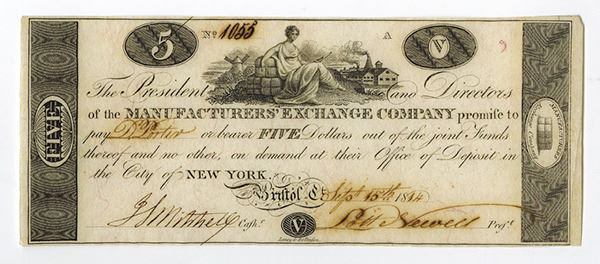 5 No 1055 A V
The President and Directors
of the MANUFACTURERS' EXCHANGE COMPANY promise to
pay D. Porter or bearer FIVE Dollars out of the joint Funds
thereof and no other, on demand at their Office of Deposit in
the City of NEW YORK.
Bristol, Ct. Sept 15th 1814
Cashr. V Presť.
FIVE
MANUFACTURERS